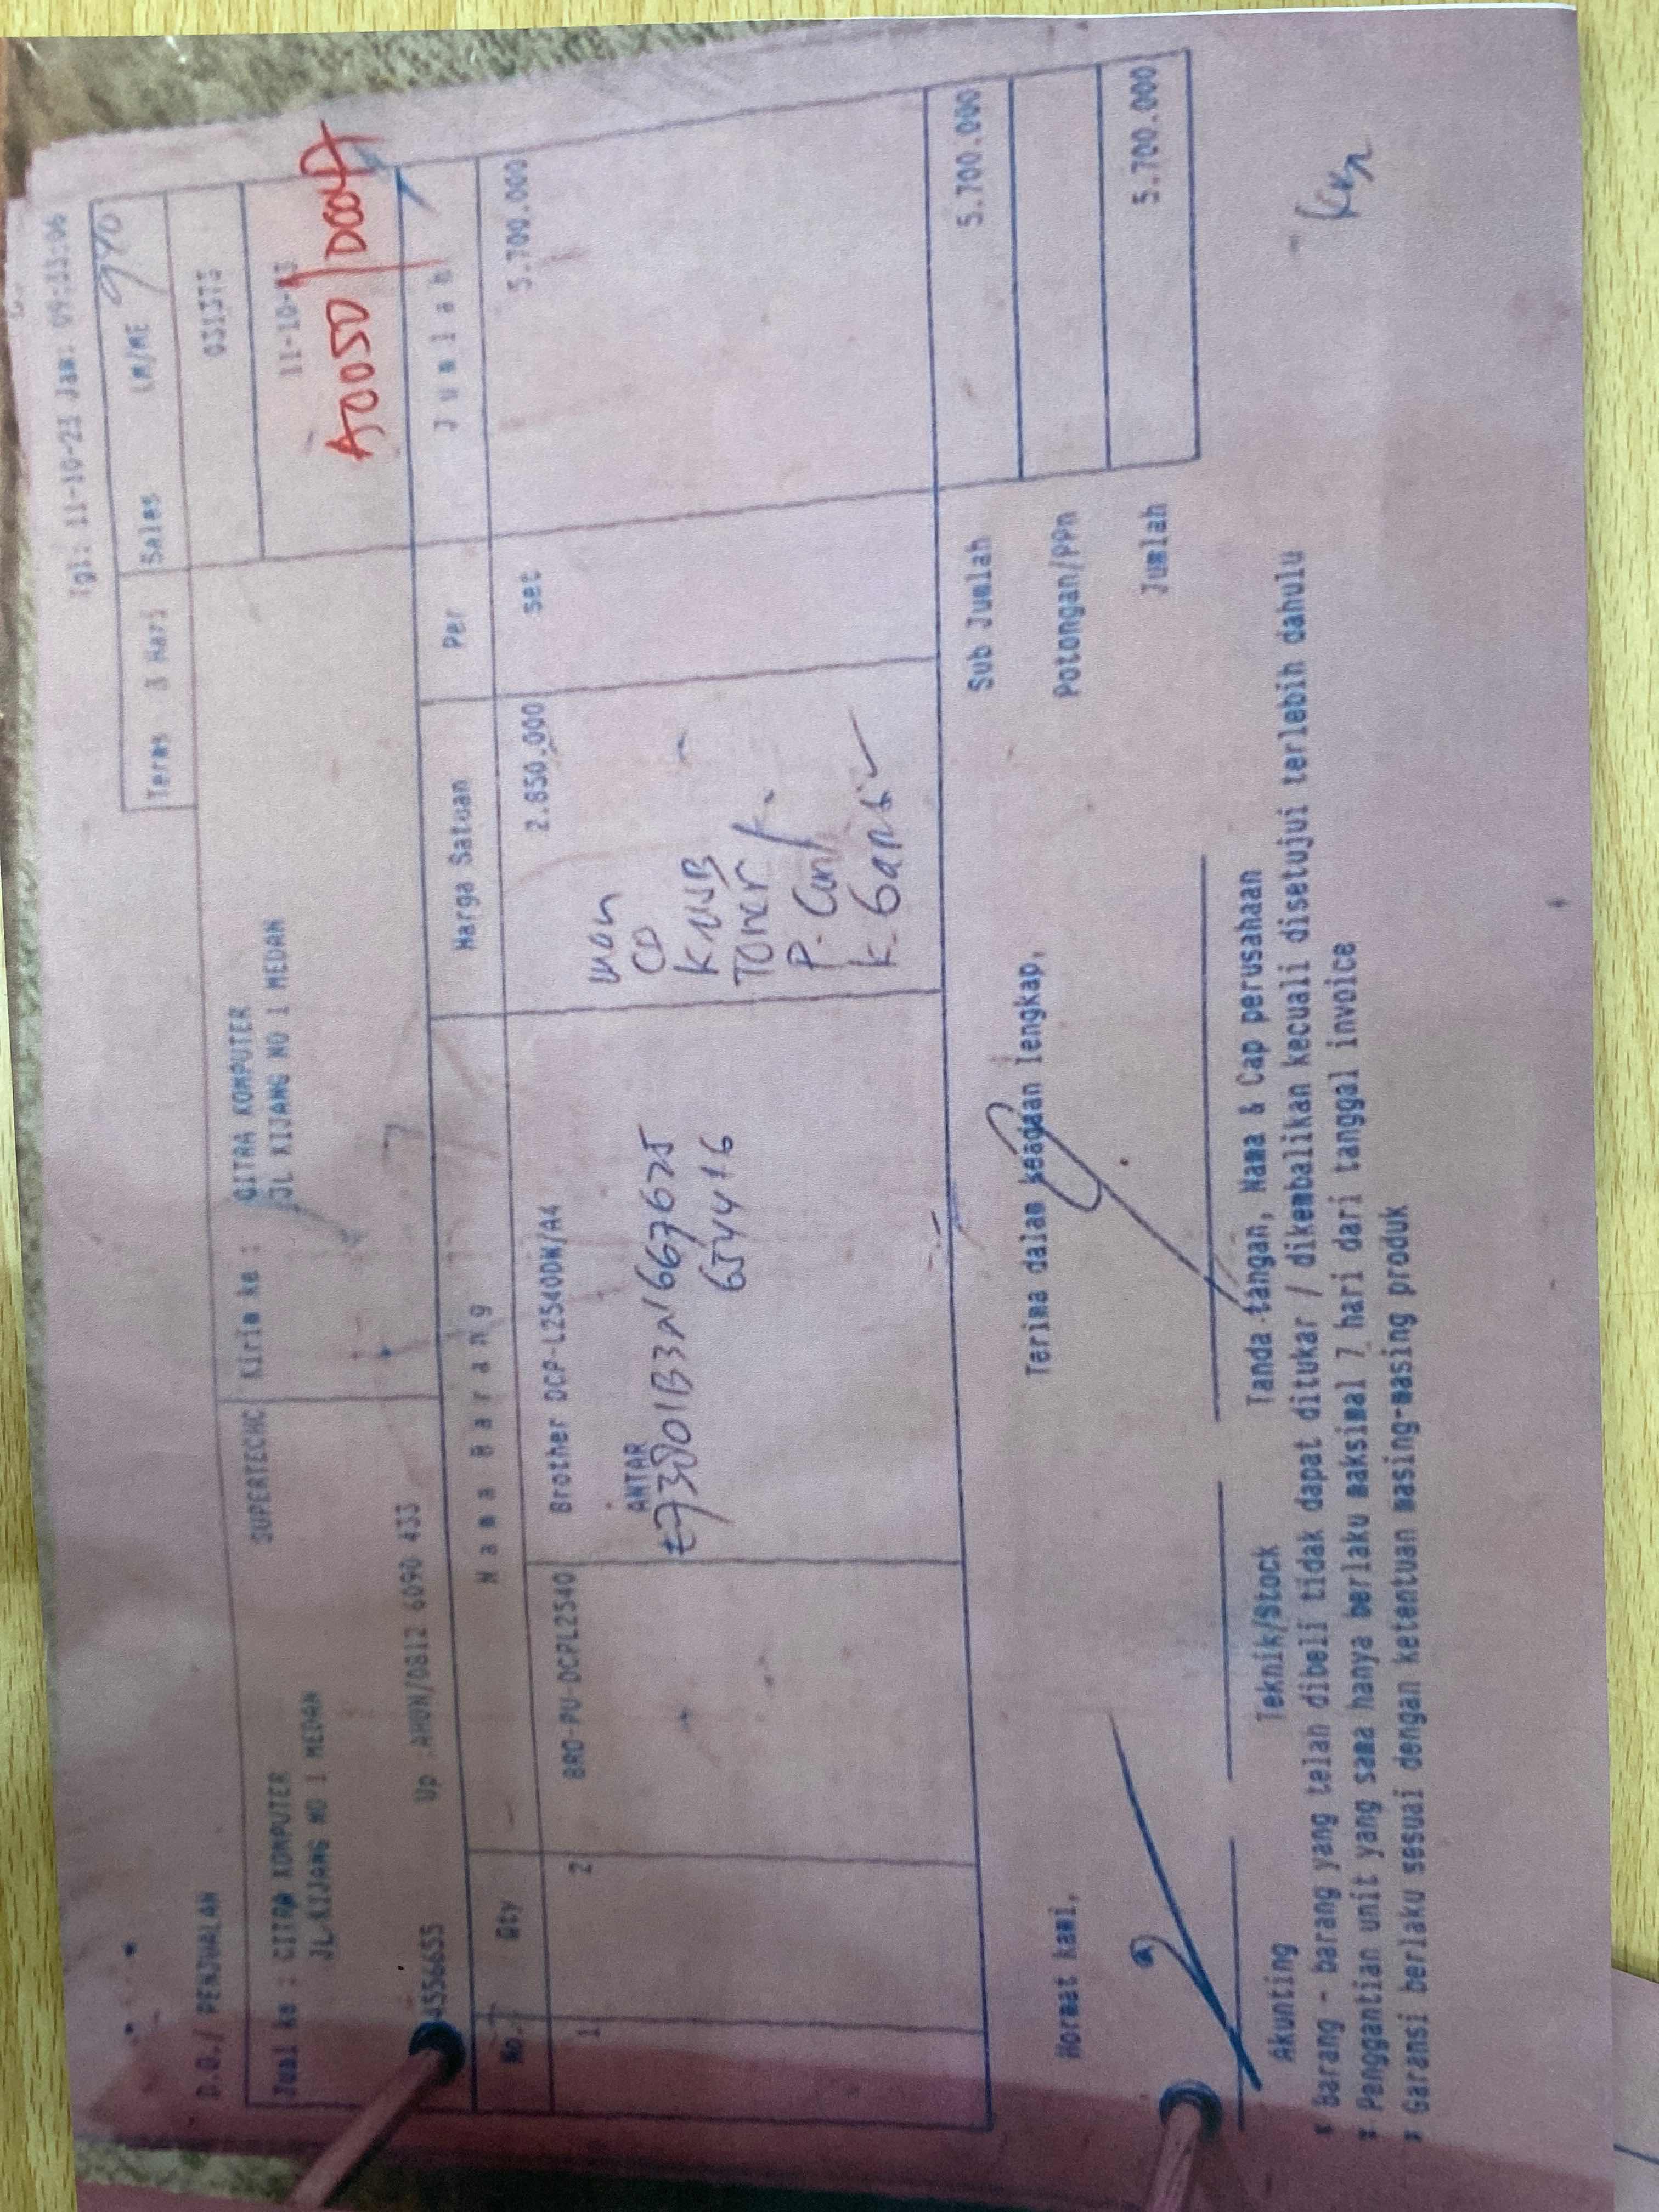 Tgl: 11-10-23 Jam: 09:11:06
Terms 3 Hari Sales LM/ME 940
D.O./ PENJUALAN
SUPERTECHC
031373
Jual ke : CITRA KOMPUTER
JL KIJANG NO 1 MEDAN
Kirim ke : CITRA KOMPUTER
JL KIJANG NO 1 MEDAN
11-10-23
4556655 Up AHUN/0812 6090 433
No. Qty Nama Barang Harga Satuan Per Jumlah
1 2 BRO-PU-DCPL2540 Brother DCP-L2540DW/A4 2.850.000 set 5.700.000
ANTAR
E73801B3N1667675
654416
CD
K USB
Toner
K. Garansi
Sub Jumlah 5.700.000
Potongan/PPn
Jumlah 5.700.000
Hormat kami,
Terima dalam keadaan lengkap,
Akunting Teknik/Stock Tanda tangan, Nama & Cap perusahaan
* Barang - barang yang telah dibeli tidak dapat ditukar / dikembalikan kecuali disetujui terlebih dahulu
* Penggantian unit yang sama hanya berlaku maksimal 7 hari dari tanggal invoice
* Garansi berlaku sesuai dengan ketentuan masing-masing produk